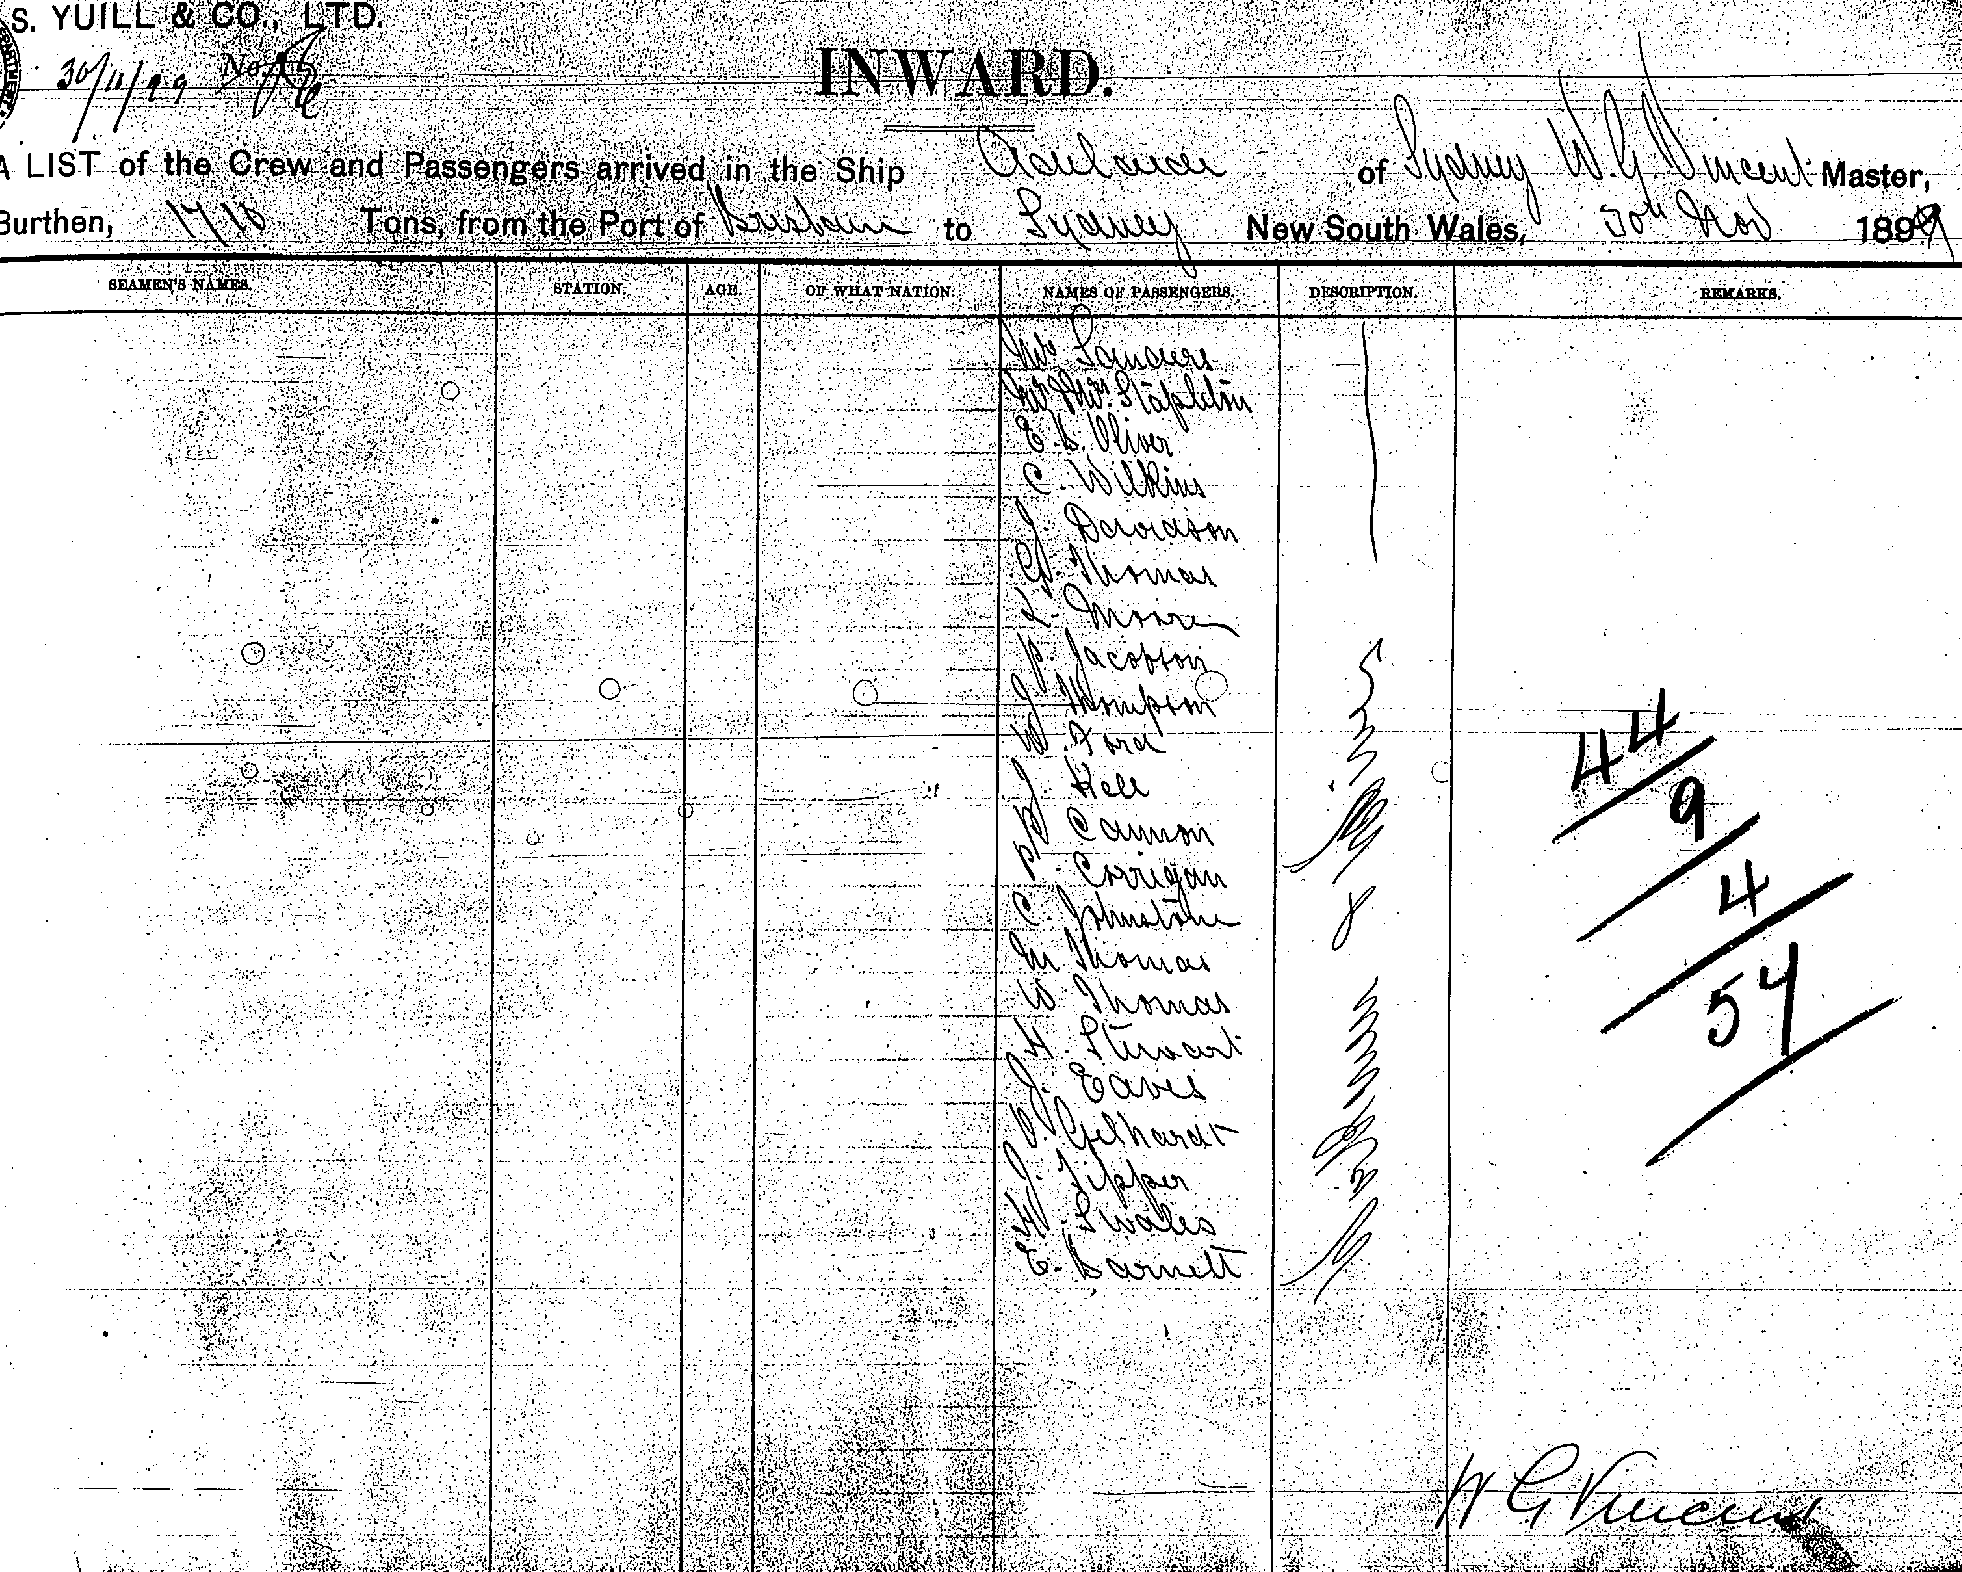 S. YUILL & CO., LTD.
30/11/99 No.
INWARD.
A LIST of the Crew and Passengers arrived in the Ship of Sydney W. G. Vincent Master,
Burthen, 1710 Tons, from the Port of Brisbane to Sydney New South Wales, 30th Nov 1899
SEAMEN'S NAMES. STATION. AGE. OF WHAT NATION. NAMES OF PASSENGERS. DESCRIPTION. REMARKS.
Mr Saunders
Mr & Mrs. Stapleton
E. S. Oliver
C. Wilkins
J. Davidson
G. Thomas
Moore
P. Jacobson
J. Thompson
W. Ford
J.
Cannon
P. Corrigan
C. Johnstone
M Thomas
W. Thomas
H. Stewart
J. Eaves
V. Gelhardt
J. Tipper
Swales
E. Barnett
44
9
4
57
W G Vincent